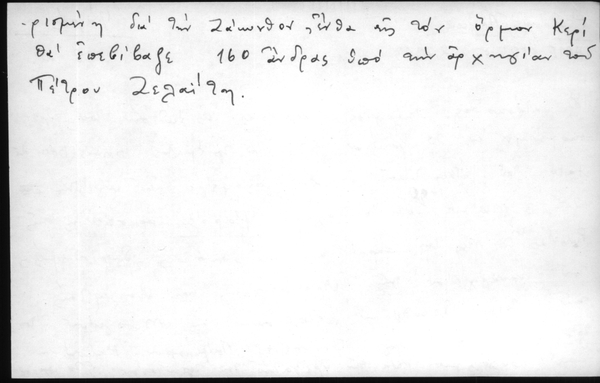 -ρισμένη διά τήν Ζάκυνθον, ἔνθα εἰς τόν ὅρμον Κερί
θά ἐπεβίβαζε 160 ἄνδρας ὑπό τήν ἀρχηγίαν τοῦ
Πέτρου Ζελαΐτη.